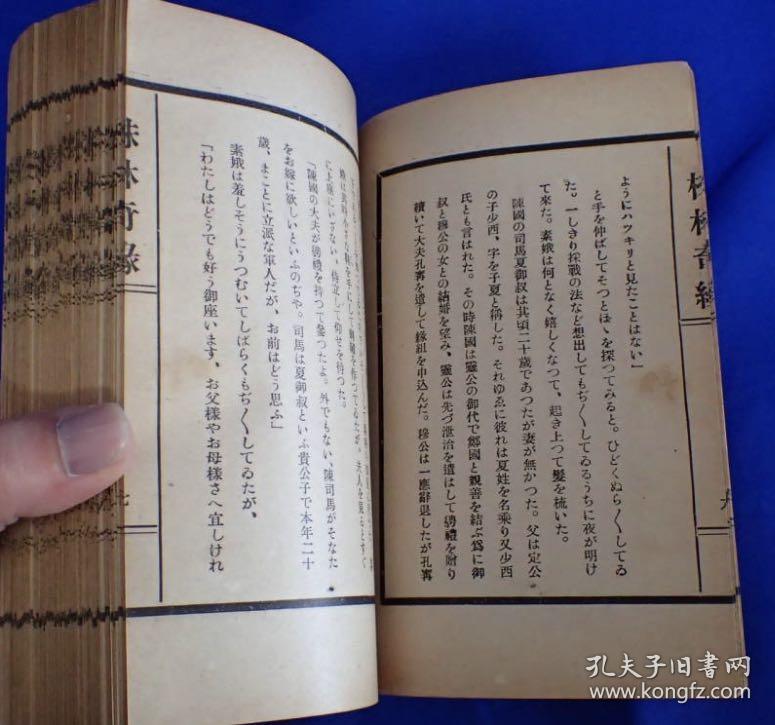 ようにハツキリと見たことはない」
と手を伸ばしてそつとほゝを探つてみると。ひどくぬら〱してゐ
た。一しきり採戰の法など想出してもぢ〱してゐるうちに夜が明け
て來た。素娥は何となく嬉しくなつて、起き上つて髮を梳いた。
陳國の司馬夏御叔は其頃二十歲であつたが妻が無かつた。父は定公
の子少西、字を子夏と稱した。それゆゑに彼れは夏姓を名乘り又少西
氏とも言はれた。その時陳國は靈公の御代で鄭國と親善を結ぶ爲に御
叔と穆公の女との結婚を望み、靈公は先づ泄冶を遣はして聘禮を贈り
續いて大夫孔寗を遣して緣組を申込んだ。穆公は一應辭退したが孔寗
株林奇緣
に上座にいざない、侍立して仰せを待つた。
「陳國の大夫が聘禮を持つて參つたよ。外でもない、陳司馬がそなた
をお嫁に欲しいといふのぢや。司馬は夏御叔といふ貴公子で本年二十
歲、まことに立派な軍人だが、お前はどう思ふ」
素娥は羞しそうにうつむいてしばらくもぢ〱してゐたが、
「わたしはどうでも好う御座います、お父樣やお母樣さへ宜しけれ
株林奇緣
七
孔夫子旧书网
www.kongfz.com